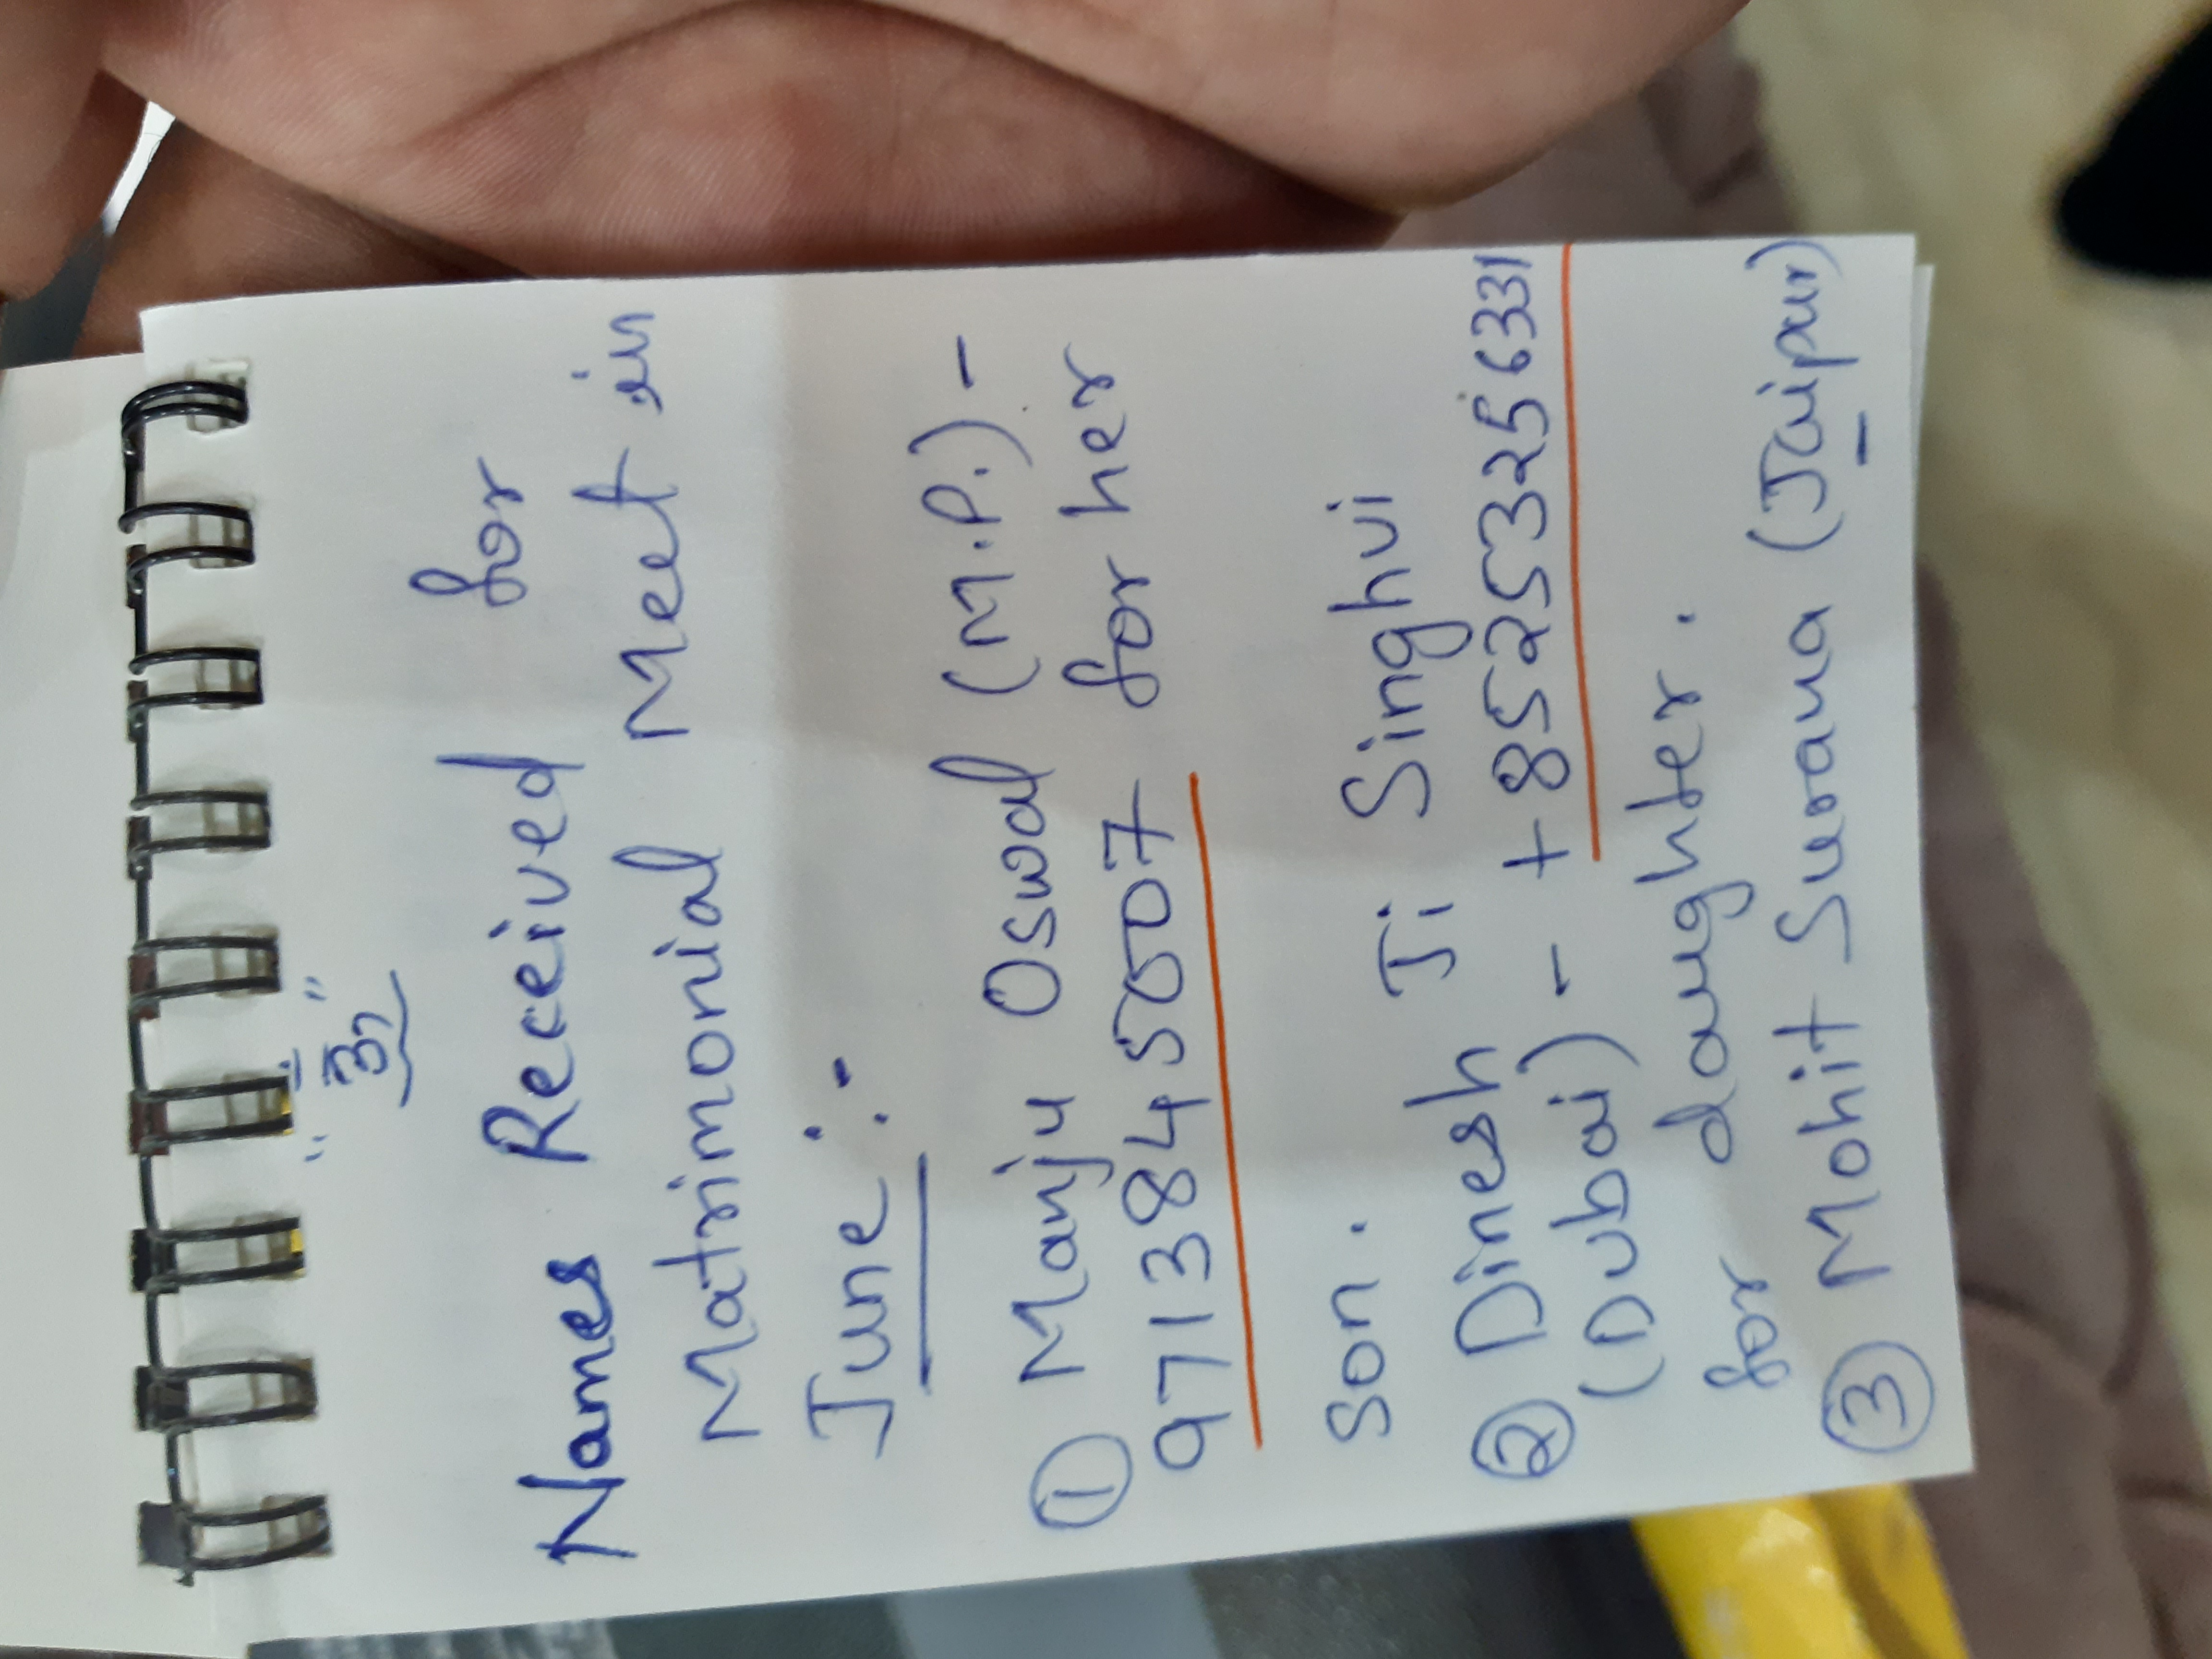 "ॐ"
Names Received for
Matrimonial Meet in
June :-
① Manju Oswal (M.P.) -
9713845807 for her
son.
② Dinesh Ji Singhvi
(Dubai) - +85253256331
for daughter.
③ Mohit Surana (Jaipur)
-